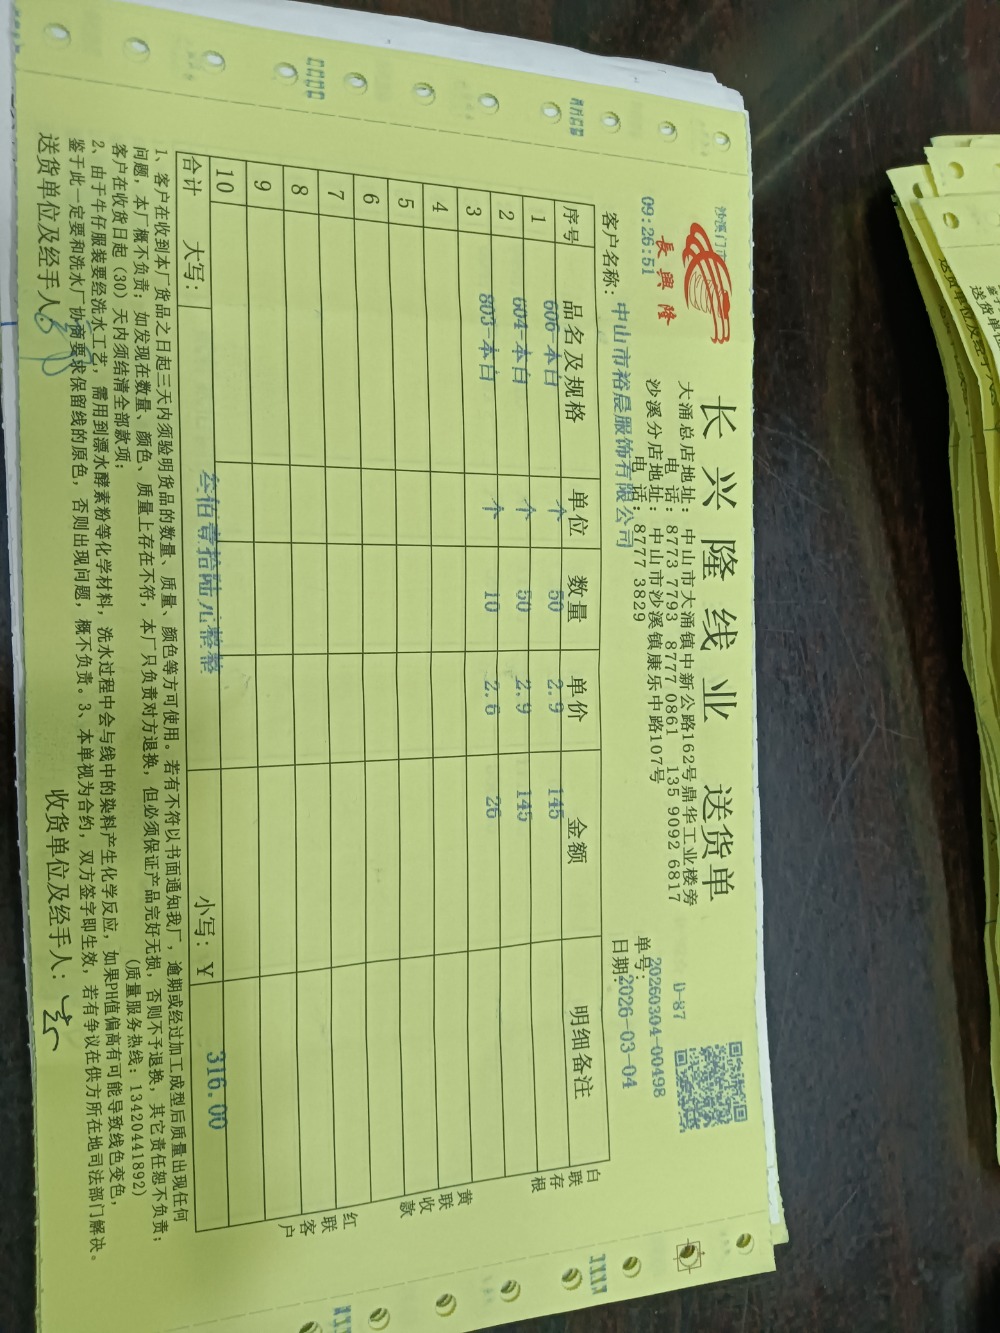 沙溪门市
09:26:51
長興隆
长兴隆线业 送货单
D-87
大涌总店地址：中山市大涌镇中新公路162号鼎华工业楼旁
电 话：8773 7793 8777 0861 135 9092 6817
沙溪分店地址：中山市沙溪镇康乐中路107号
电 话：8777 3829
单号：20260304-00498
客户名称：中山市裕晨服饰有限公司
日期：2026-03-04
序号 品名及规格 单位 数量 单价 金额 明细备注
1 606-本白 个 50 2.9 145
2 604-本白 个 50 2.9 145
3 803-本白 个 10 2.6 26
4
5
6
7
8
9
10
合计 大写： 叁佰壹拾陆元整整 小写：￥ 316.00
白联存根
黄联收款
红联客户
1、客户在收到本厂货品之日起三天内须验明货品的数量、质量、颜色等方可使用。若有不符以书面通知我厂，逾期或经过加工成型后质量出现任何
问题，本厂概不负责；如发现在数量、颜色、质量上存在不符，本厂只负责对方退换，但必须保证产品完好无损，否则不予退换，其它责任恕不负责；
客户在收货日起（30）天内须结清全部款项； （质量服务热线：13420441892）
2、由于牛仔服装要经洗水工艺，需用到漂水酵素粉等化学材料，洗水过程中会与线中的染料产生化学反应，如果PH值偏高有可能导致线色变色，
鉴于此一定要和洗水厂协商要求保留线的原色，否则出现问题，概不负责。3、本单视为合约，双方签字即生效，若有争议在供方所在地司法部门解决。
送货单位及经手人：
收货单位及经手人：